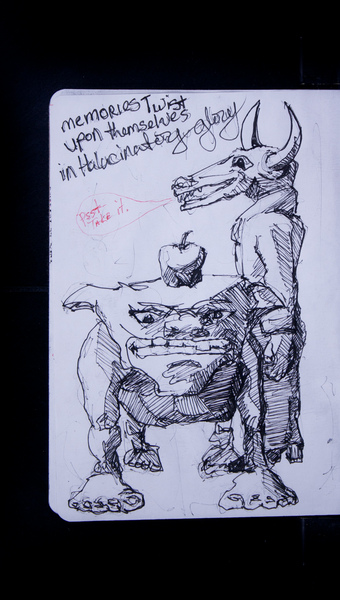 memories Twist
upon themselves
in Halucinatory glory
Psst.
Take it.